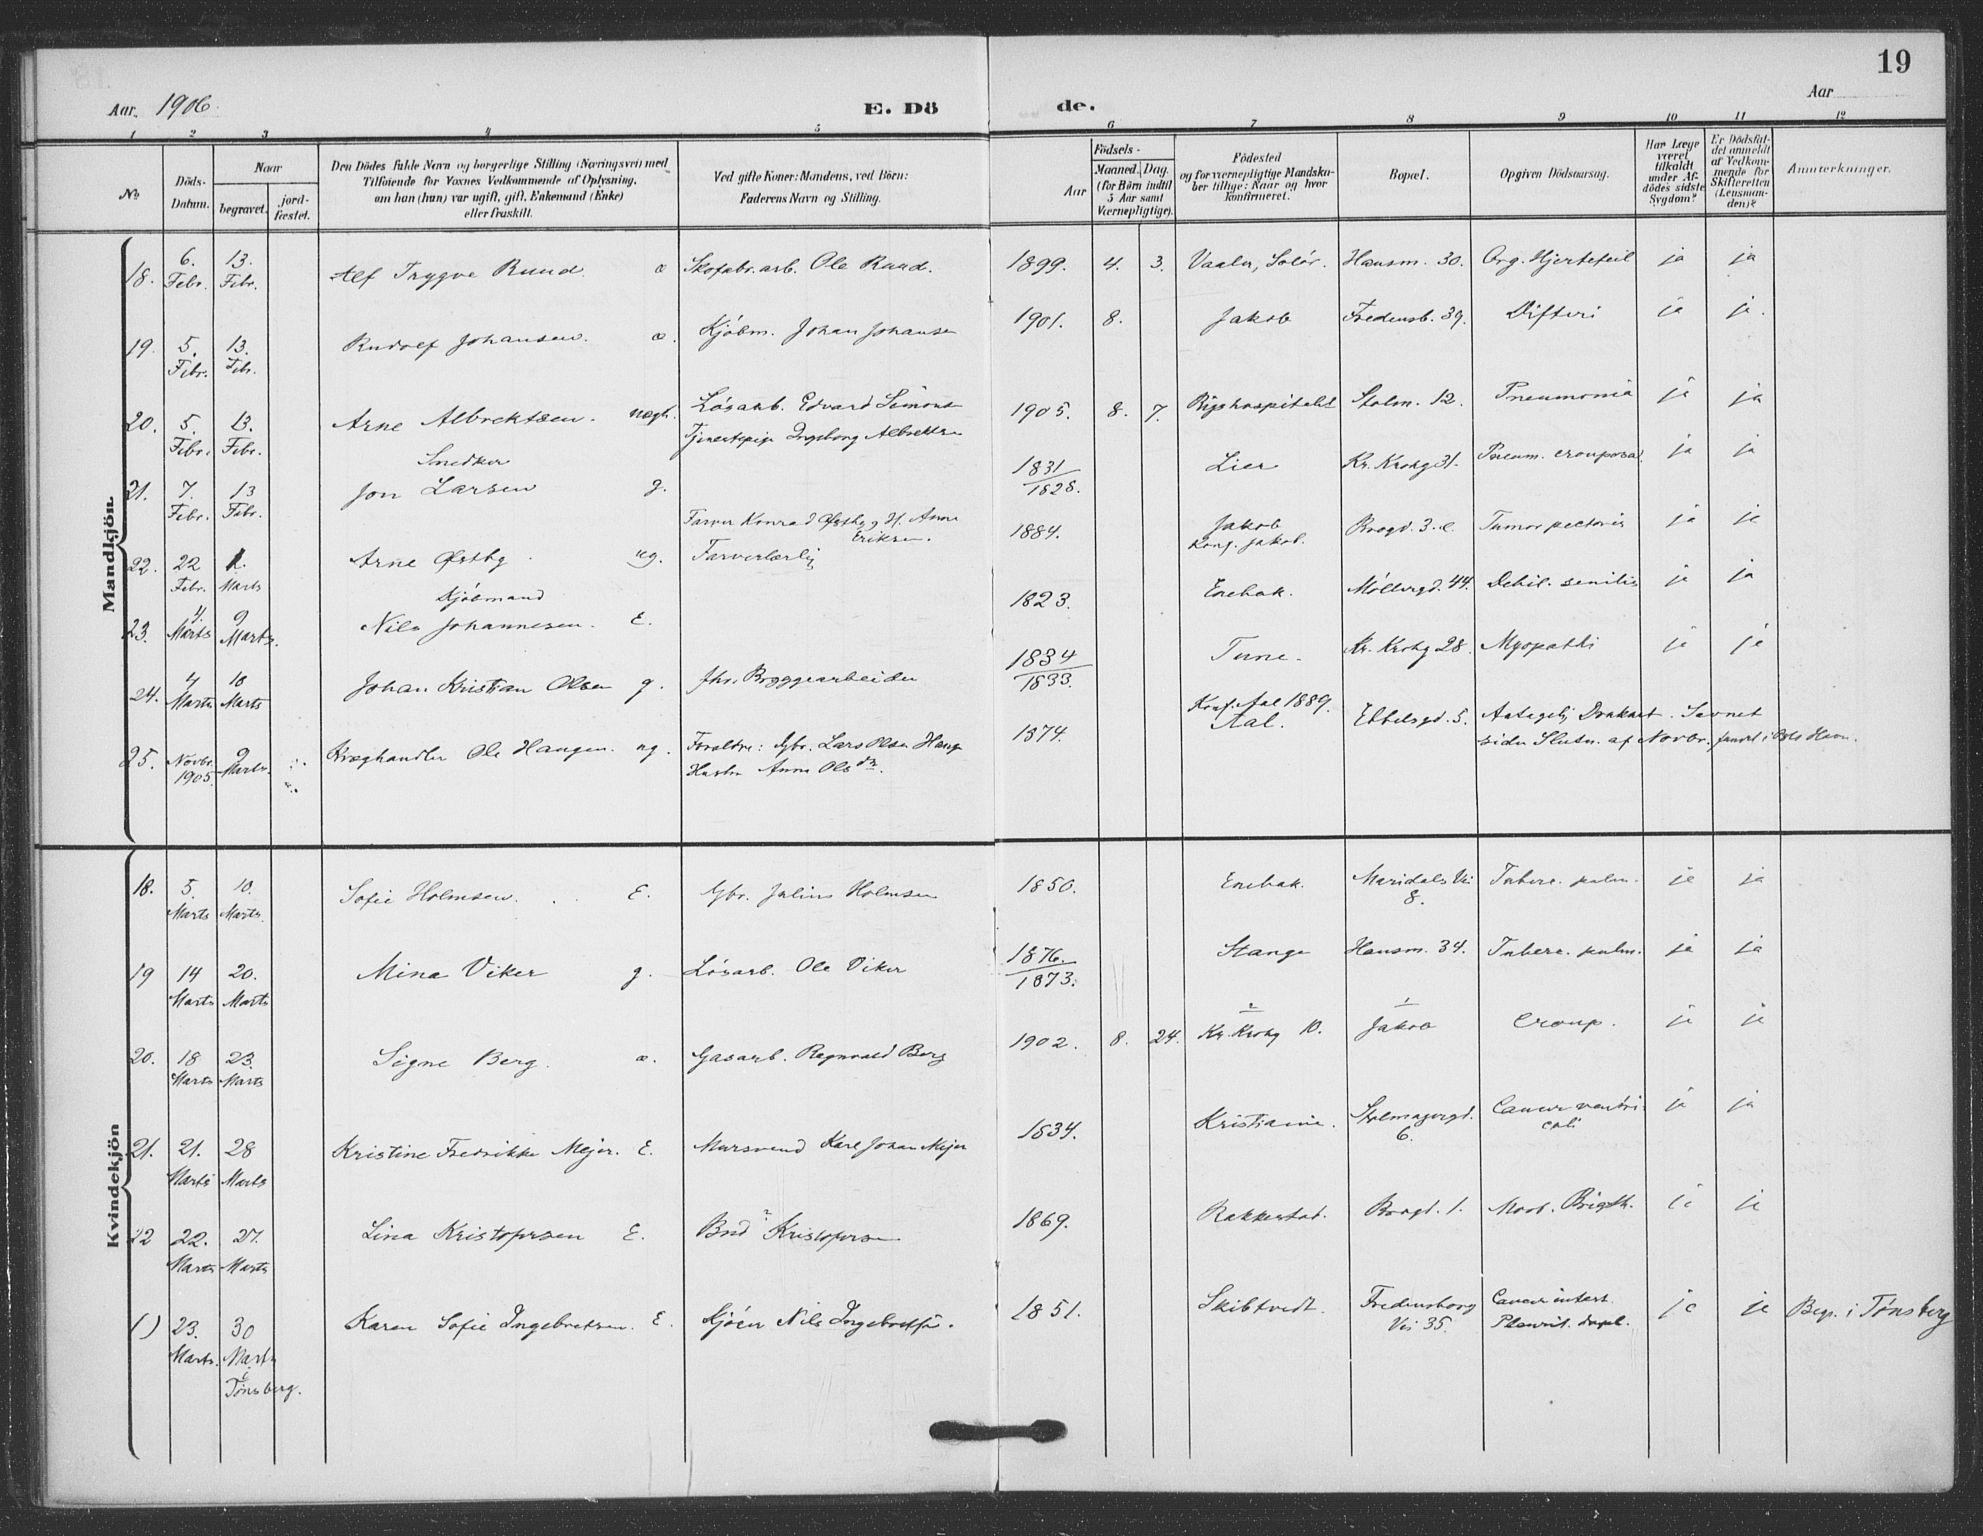 19
Aar. 1906.
E. Dö
de.
Aar
1 2 3 4 5 6 7 8 9 10 11 12
No.
Döds-
Datum.
Naar
begravet.
jord-
fæstet.
Den Dödes fulde Navn og borgerlige Stilling (Næringsvei) med
Tilföiende for Voxnes Vedkommende af Oplysning,
om han (hun) var ugift, gift, Enkemand (Enke)
eller fraskilt.
Ved gifte Koner: Mandens, ved Börn:
Faderens Navn og Stilling.
Födsels-
Aar
Maaned. Dag.
(for Börn indtil
5 Aar samt
Værnepligtige).
Födested
og for værnepligtige Mandska-
ber tillige: Naar og hvor
konfirmeret.
Bopæl.
Opgiven Dödsaarsag.
Har Læge
været
tilkaldt
under Af-
dödes sidste
Sygdom?
Er Dödsfal-
det anmeldt
af Vedkom-
mende for
Skifteretten
(Lensman-
den)?
Anmærkninger.
Mandkjön.
18. 6. Febr. 13. Febr. Alf Trygve Ruud. Skofabr. arb. Ole Ruud. 1899. 4. 3. Vaaler, Solör. Hausm. 30. Org. Hjertefeil ja ja
19. 5. Febr. 13. Febr. Rudolf Johansen. Kjöbm. Johan Johansen 1901. 8. Jakob Fredensb. 39. Difteri ja ja.
20. 5. Febr. 13. Febr. Arne Albrektsen. uægt. Lösarb. Edvard Simons
Tjenestepige Ingeborg Albrektsen 1905. 8. 7. Rigshospitalet Stolm. 12. Pneumonia ja ja
21. 7. Febr. 13 Febr. Snedker
Jon Larsen g. 1831/1828. Lier Kr. Krohg 31. Pneum. crouposa. ja ja
22. 22 Febr. 1. Marts Arne Østby ug. Farver Konrad Østby og H. Anna
Eriksen.
Farverlærling 1884. Jakob
Konf. Jakob. Brogd. 3. c. Tumor pectoris ja ja
23. 4. Marts 9 Marts. Kjöbmand
Nils Johannesen. E. 1823. Enebak. Möllergd. 44. Debil. senilis ja ja
24. 4 Marts 10 Marts Johan Kristian Olsen g. fhv. Bryggearbeider 1834/1833. Tune. Kr. Krohg 28. Myopathi ja ja
25. Novbr. 1905. 9 Marts. Kræghandler Ole Haugen. ug. Foreldre: Gbr. Lars Olsen Haugen
Hustru Anne Olsdtr. 1874. Konf. Aal 1889.
Aal. Ebbelsgd. 5. Antagelig Druknet. Savnet
siden Slutn. af Novbr. fundet i Oslo Havn.
Kvindekjön
18. 5. Marts 10. Marts. Sofie Holmsen. E. Gbr. Julius Holmsen 1850. Enebak. Maridals Vei
8. Tuberc. pulm. ja ja
19 14 Marts 20. Marts Mina Viker g. Lösarb. Ole Viker 1876./1873. Stange Hausm. 34. Tuberc. pulm. ja ja
20. 18 Marts 23 Marts Signe Berg. Gasarb. Ragnvald Berg 1902. 8. 24. 2 Kr. Krohg 10. 1 Jakob Croup. ja ja
21. 21. Marts 28 Marts Kristine Fredrikke Mejer. E. Mursvend Karl Johan Mejer 1834. Kristiania. Stolmagergd.
6. Cancer ventri-
culi ja ja
22 22. Marts 27. Marts Lina Kristofersen E. Bmd ? Kristofersen 1869. Rakkestad. Brogd. 1. Morb. Brigth. ja ja
1) 23. Marts. 30 Marts
i
Tönsberg. Karen Sofie Ingebretsen. E. Gjöer Nils Ingebretsen. 1851. Skibtvedt. Fredensborg
Vei 35. Cancer intest.
Pleurit. dupl. ja ja Begr. i Tönsberg